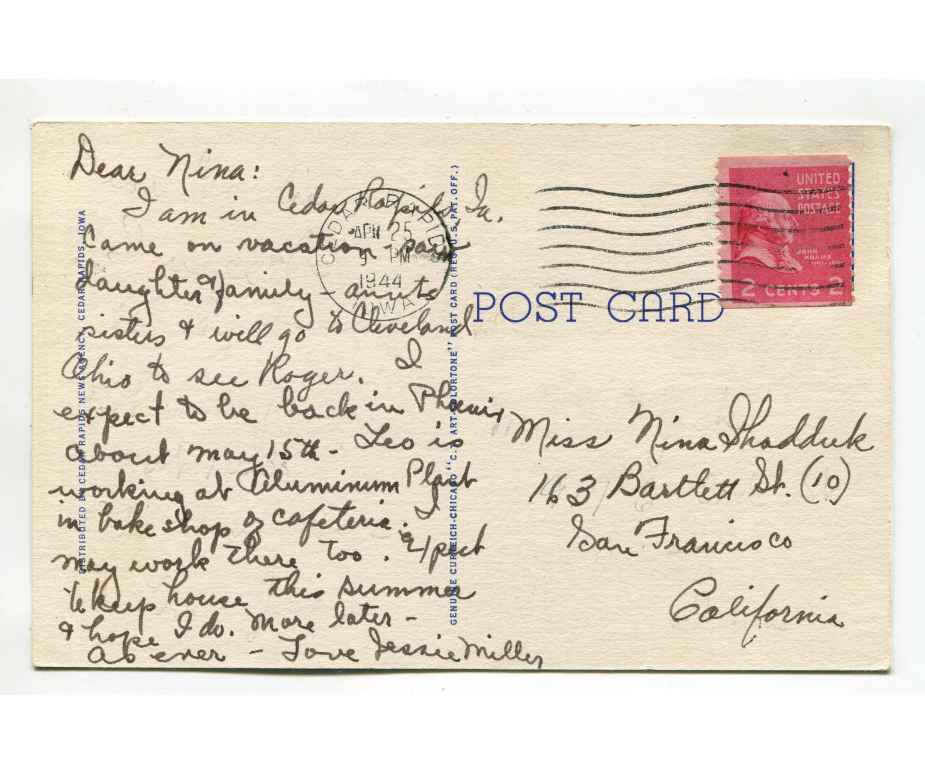 Dear Nina:
I am in Cedar Rapids, Ia.
Came on vacation - saw
daughter & family - aunts
sisters & will go to Cleveland
Ohio to see Roger. I
expect to be back in Phoenix
about May 15th - Leo is
working at Aluminum Plant
in bake shop of cafeteria. I
may work there too. Expect
to keep house this summer
& hope I do. More later -
As ever - Love Jessie Miller
DISTRIBUTED BY CEDAR RAPIDS NEWS AGENCY, CEDAR RAPIDS, IOWA
GENUINE CURTEICH-CHICAGO "C.T. ART-COLORTONE" POST CARD (REG. U.S. PAT. OFF.)
CEDAR RAPIDS
APR 25
PM
1944
IOWA
POST CARD
UNITED
STATES
POSTAGE
JOHN
ADAMS
2 CENTS 2
Miss Nina Shadduk
163 Bartlett St. (10)
San Francisco
California